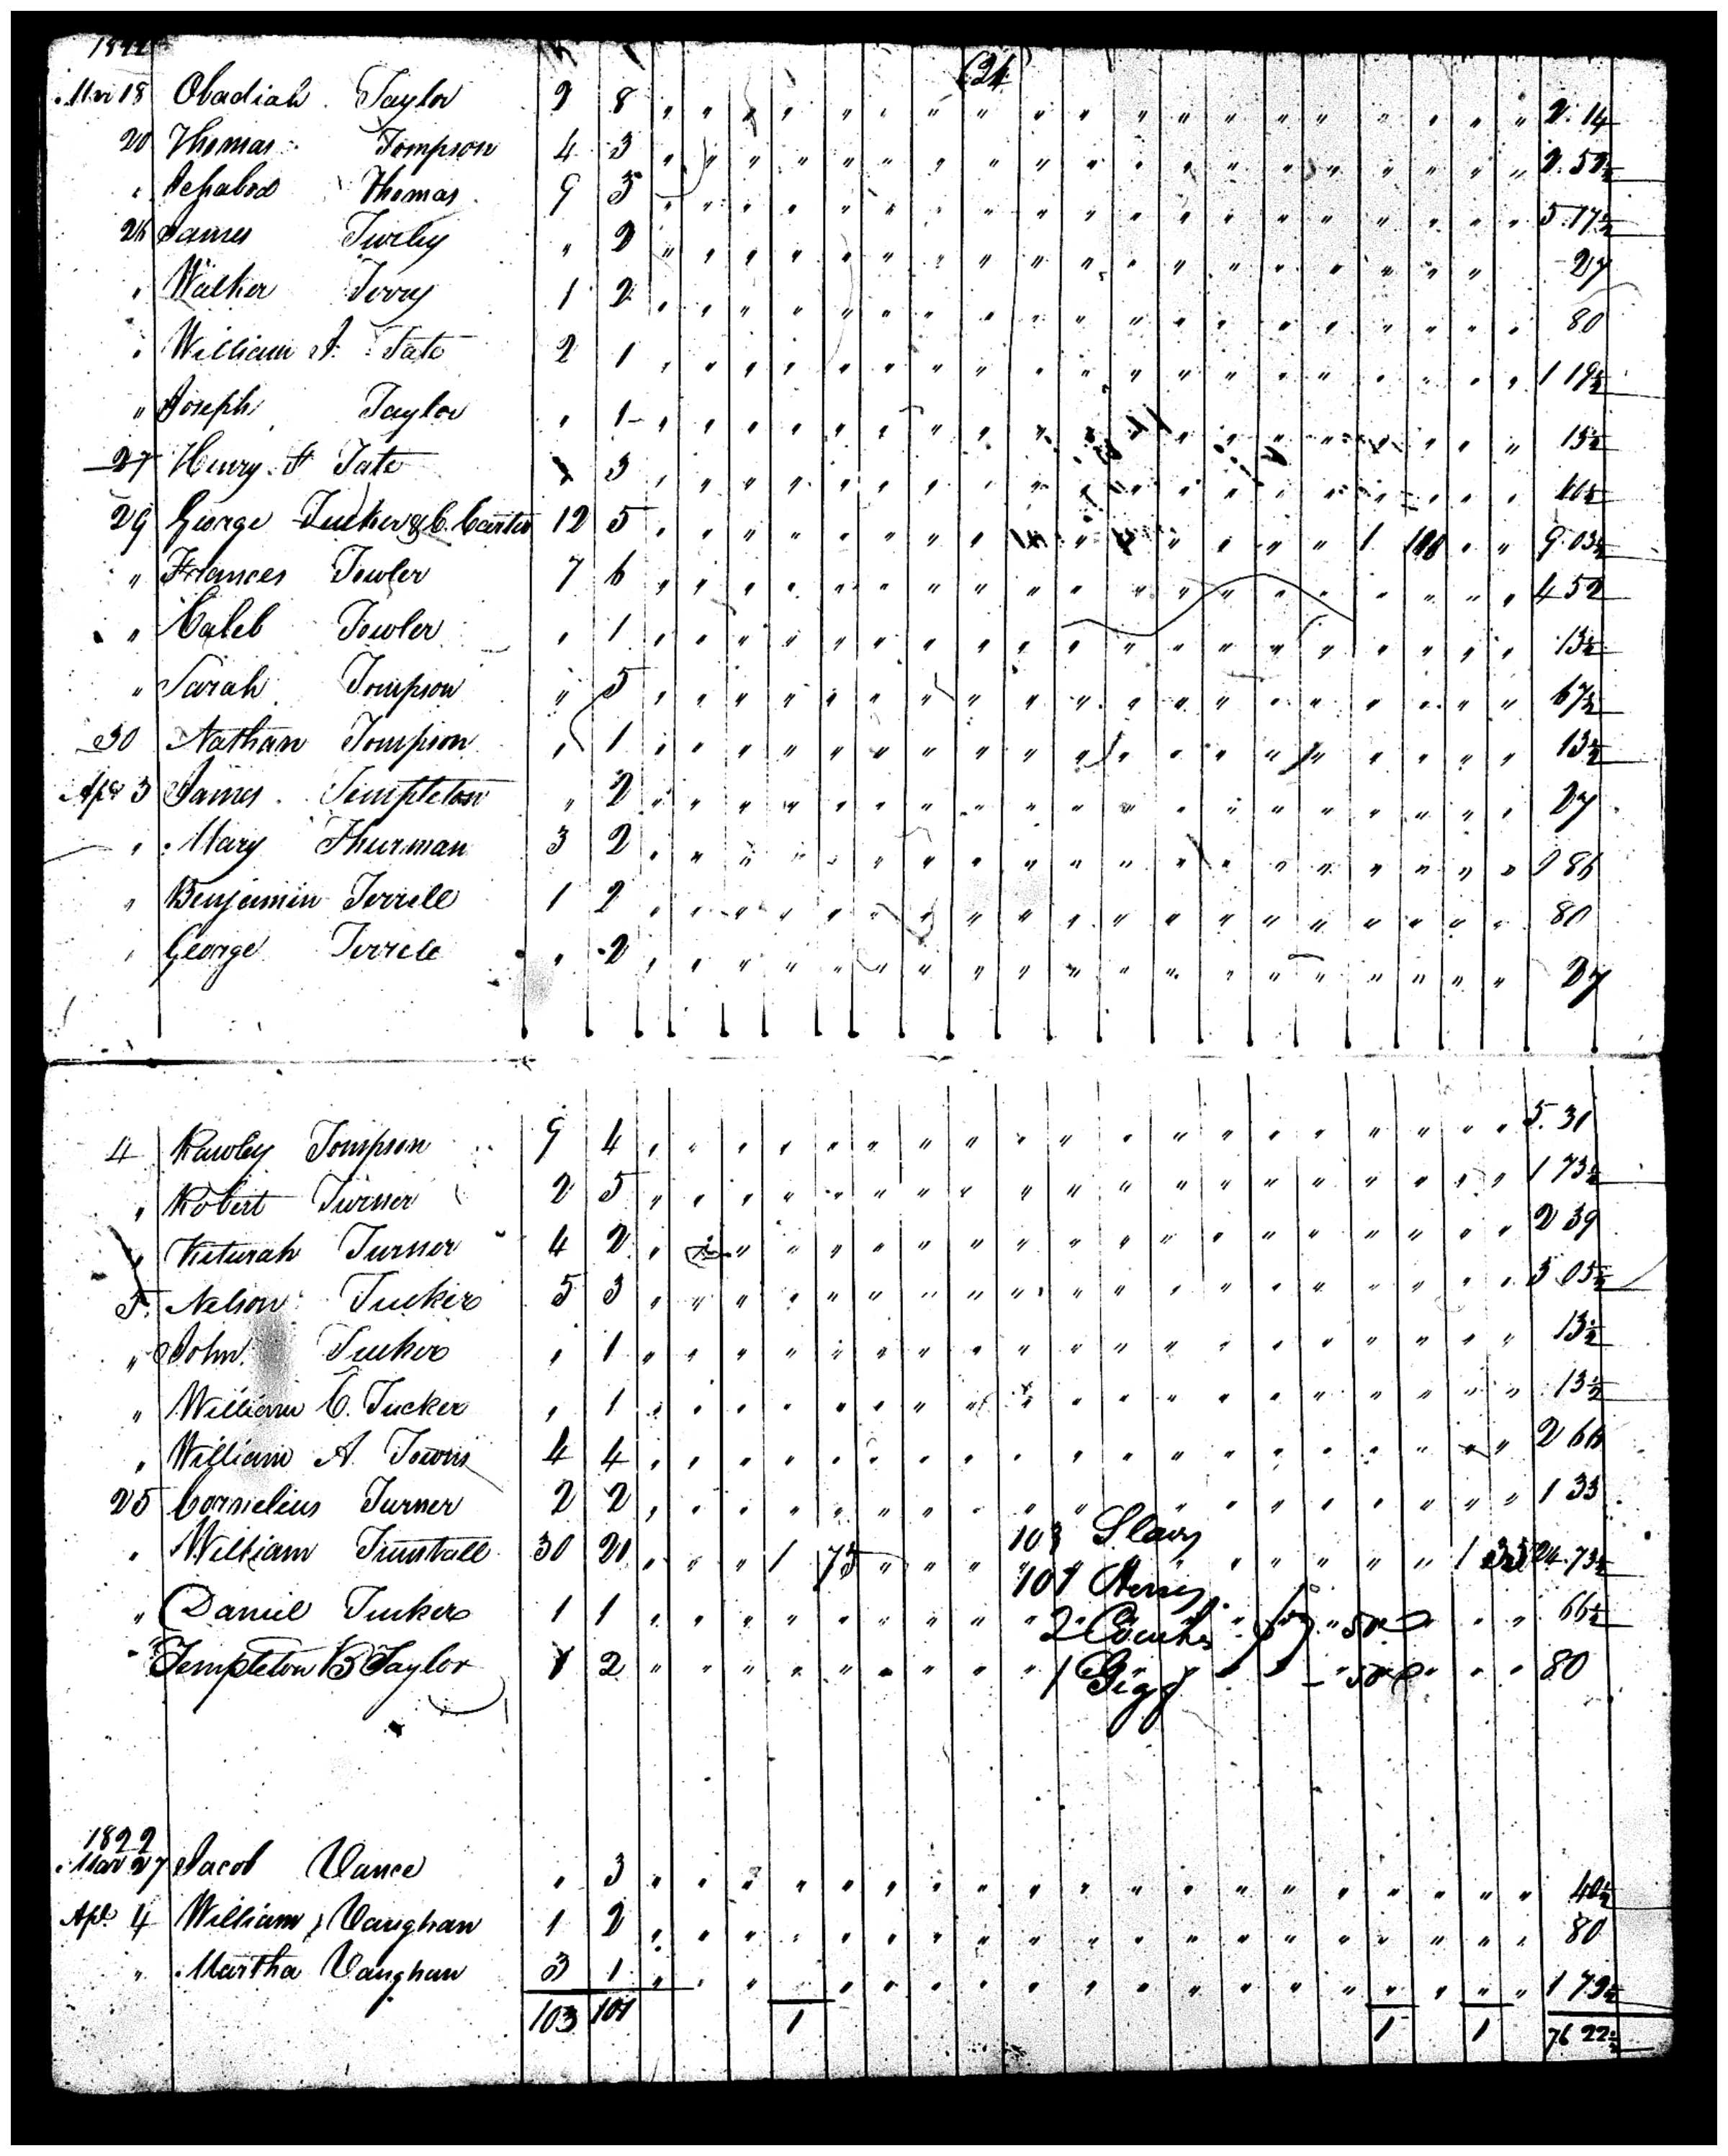 1822
(24
Mar 18 Obadiah Taylor 2 8 " " " " " " " " " " " " " " " " " " " 2.14
20 Thomas Tompson 4 3 " " " " " " " " " " " " " " " " " " " 2.52½
" Ichabod Thomas 9 3 " " " " " " " " " " " " " " " " " " " 5.17½
26 James Turley " 2 " " " " " " " " " " " " " " " " " " 27
" Walker Terry 1 2 " " " " " " " " " " " " " " " " " " " 80
" William Tate 2 1 " " " " " " " " " " " " " " " " " " " 1 19½
" Joseph Taylor " 1 " " " " " " " " " " " " " " " " " " " 13½
27 Henry Tate 3 " " " " " " " " " " " " " " " " " " " 40½
29 George Tucker & C. Carter 12 5 " " " " " " " " " " " " " " 1 100 " " 9.03½
" Frances Towler 7 6 " " " " " " " " " " " " " " " " " " " 4 52
" Caleb Towler " 1 " " " " " " " " " " " " " " " " " " " 13½
" Sarah Tompson " 5 " " " " " " " " " " " " " " " " " " " 67½
30 Nathan Tompson " 1 " " " " " " " " " " " " " " " " " " " 13½
Apr 3 James Templeton " 2 " " " " " " " " " " " " " " " " " " " 27
" Mary Thurman 3 2 " " " " " " " " " " " " " " " " " " " 1 86
" Benjamin Terrell 1 2 " " " " " " " " " " " " " " " " " " " 80
" George Terrell " 2 " " " " " " " " " " " " " " " " " " " 27
4 Rawley Tompson 9 4 " " " " " " " " " " " " " " " " " " " 5.31
" Robert Turner 2 5 " " " " " " " " " " " " " " " " " " " 1 73½
" Keturah Turner 4 2 " " " " " " " " " " " " " " " " " " 2 39
5 Nelson Tucker 5 3 " " " " " " " " " " " " " " " " " " " 3 05½
" John Tucker " 1 " " " " " " " " " " " " " " " " " " " 13½
" William C. Tucker " 1 " " " " " " " " " " " " " " " " " " " 13½
" William A. Towns 4 4 " " " " " " " " " " " " " " " " " " " 2 66
25 Cornelius Turner 2 2 " " " " " " " " " " " " " " " " " " " 1 33
103 Slaves
" William Tunstall 30 20 " " " 1 75 " " " " " " " " " " 1 24.73½
101 Horses
" Daniel Tucker 1 1 " " " " " " " " " " " " " " " " 66½
2 Coaches 50
" Templeton B Taylor 1 2 " " " " " " " " " " " " " " 80
1 Gigg 50
1822
Mar 27 Jacob Vance " 3 " " " " " " " " " " " " " " " " " " " 40½
Apl. 4 William Vaughan 1 2 " " " " " " " " " " " " " " " " " " " 80
" Martha Vaughan 3 1 " " " " " " " " " " " " " " " " " " 1 72½
103 101 1 1 1 76 22½